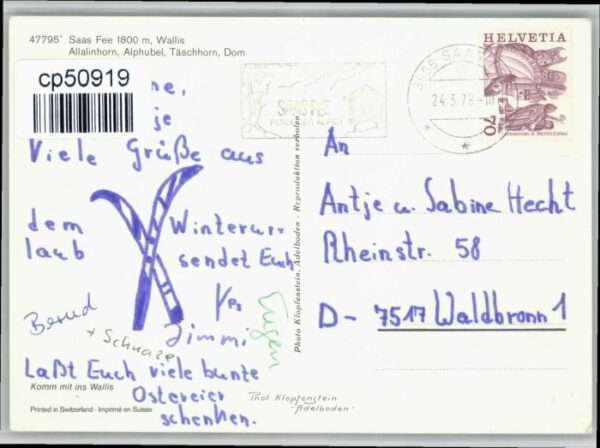 47795 Saas Fee 1800 m, Wallis
Allalinhorn, Alphubel, Täschhorn, Dom
cp50919
ne,
je
Viele Grüße aus
dem Winterur-
laub sendet Euch
Jimmi
Bernd
+ Schnaze
Eugen
Laßt Euch viele bunte
Ostereier
schenken.
Komm mit ins Wallis
Printed in Switzerland - Imprimé en Suisse
Photo Klopfenstein, Adelboden - Reproduktion verboten
HELVETIA
70
24.3.78
An
Antje u. Sabine Hecht
Rheinstr. 58
D- 7517 Waldbronn 1
Phot Klopfenstein
Adelboden